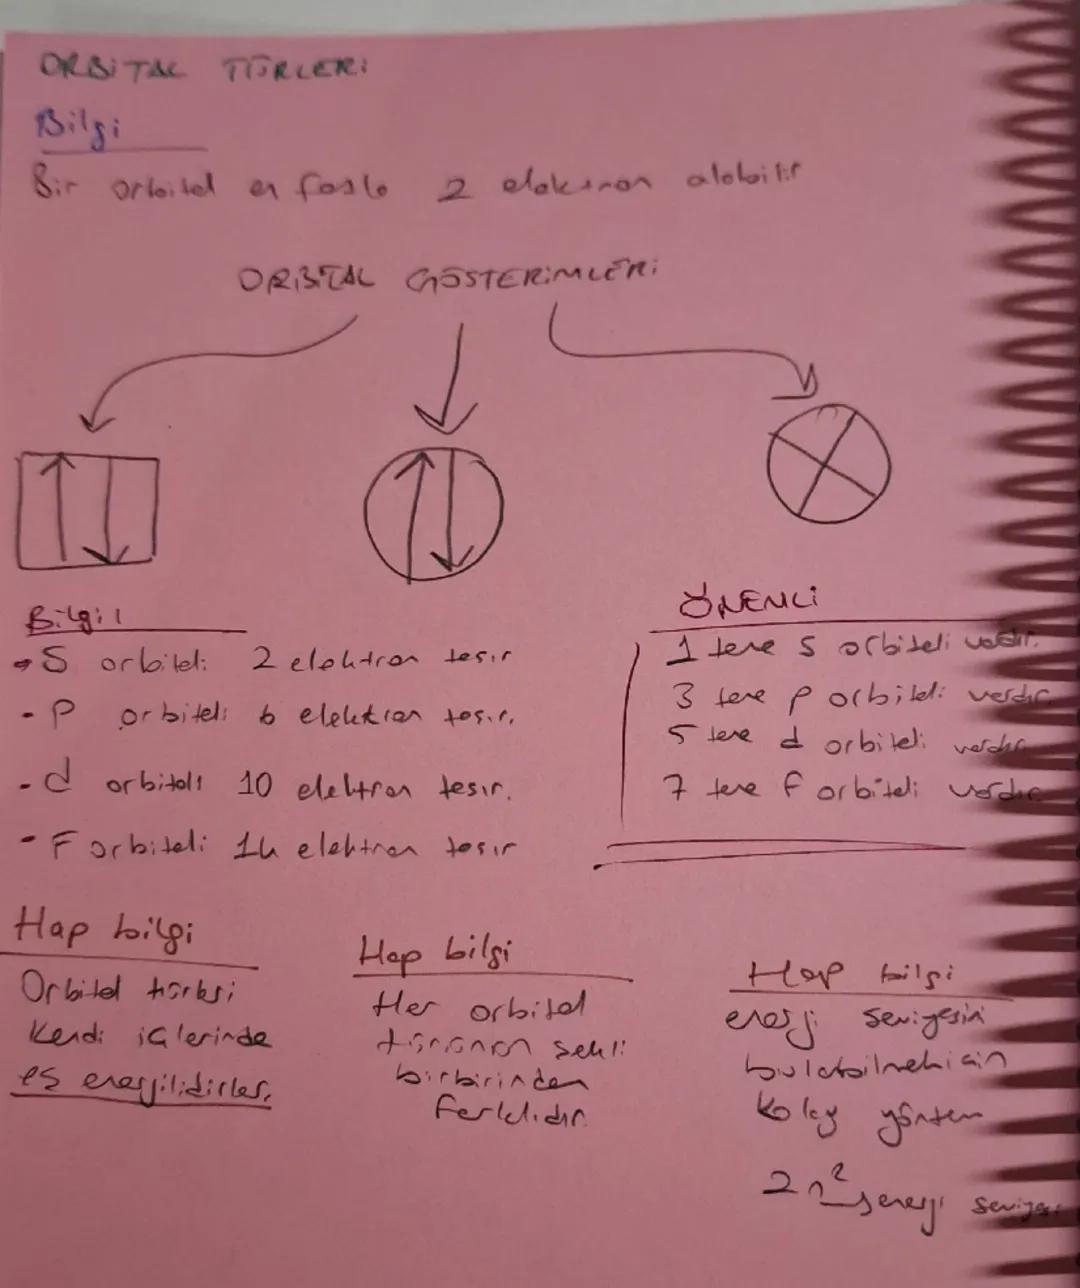 ORBİTAL TÜRLERİ
Bilgi
Bir orbital en fazla 2 elektron alabilir
ORBİTAL GÖSTERİMLERİ
Bilgi!
S orbitali 2 elektron taşır
- P orbitali 6 elektron taşır.
- d orbitali 10 elektron taşır.
- F orbitali 14 elektron taşır
ÖNEMLİ
1 tane s orbitali vardır.
3 tane p orbitali vardır.
5 tane d orbitali vardır
7 tane f orbitali vardır
Hap bilgi
Orbital türleri
Kendi içlerinde
eş enerjilidirler.
Hap bilgi
Her orbital
türünün şekli
birbirinden
farklıdır.
Hap bilgi
enerji seviyesini
bulabilmek için
Kolay yöntem
2n² enerji seviyesi